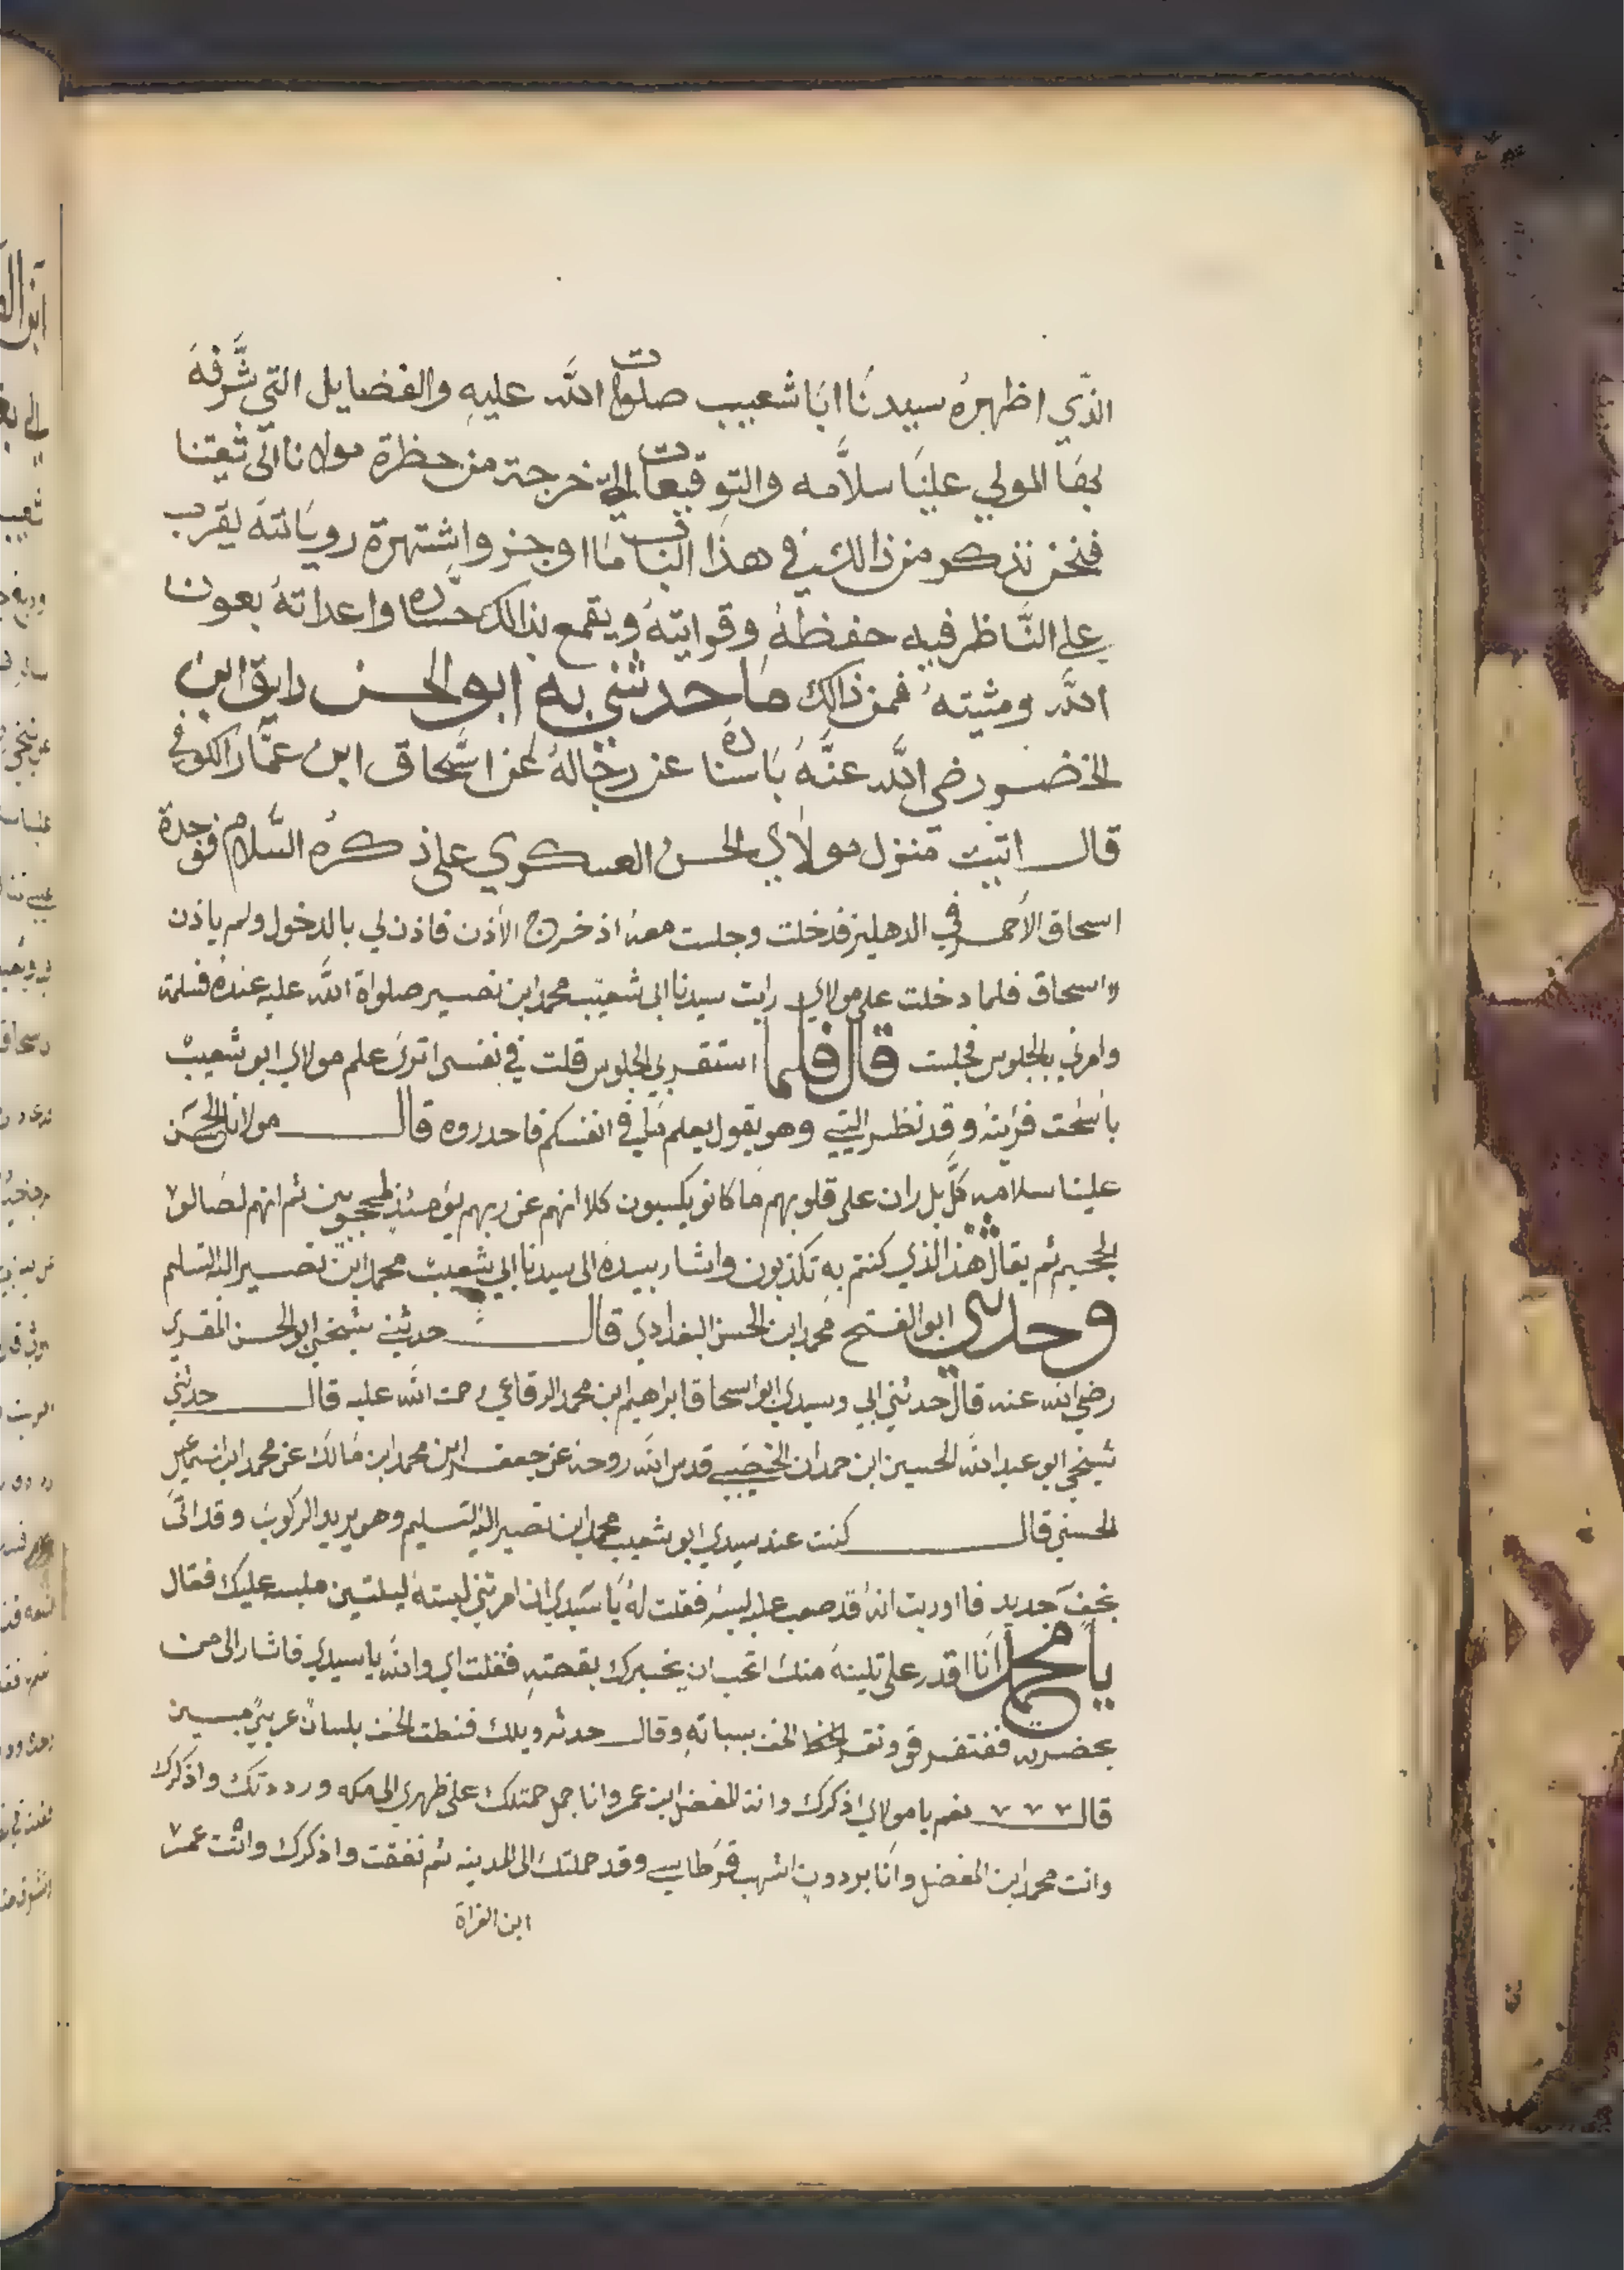 الذّي اظهرهُ سيدنَا ابَا شعيب صلوات اللّه عليهِ والفضايل التي شَّرفهَ
بهَا المولي علينَا سلاَّمه والتوقيعات التي خرجة من حظرة مولانا الى ثقتنا
فنحن نذكر من ذالك في هذا الباب مَا اوجز واشتهرة رويَاتهَ ليقرب
على النَّاظر فيه حفظهُ وقرايتهُ ويقمع بذالك حسَّاده واعداتهُ بعون
اللّه ومشيته فمن ذالك مَا حدثني به ابو الحسن رايق ابن
الخضر رضي اللّه عنَّهُ باسناده عن رجَالهُ عن اسَّحاق ابن عمَّار الكوفي
قال اتيت منزل مولاي الحسن العسكري على ذكرهُ السَّلام فوجدة
اسحاق الأحمر في الدهليز فدخلت وجلست معهُ اذ خرج الأذن فاذن لي بالدخول ولم ياذن
لاسحاق فلما دخلت على مولاي رايت سيدنا ابى شعيب محمد ابن نصير صلواة اللّه عليه عنده فسلمة
وامرني بالجلوس فجلست قال فلما استقر بي الجلوس قلت في نفسى اترى علم مولاي ابو شعيب
باسحٰق فرَيتهُ وقد نظر اليَّ وهو يقول يعلم مَا في انفسكم فاحدروه قال مولانا الحسَن
علينا سلامه كلَّ بل ران على قلوبهم مَا كانو يكسبون كلا انهم عن ربهم يوَمئذٍ لمحجوبين ثم انهم لصَالو
الجحيم ثم يقال هَذا الَّذي كنتم بهِ تكذبون واشار بيده الى سيدنا ابي شعيب محمد ابن نصير اليه التسليم
وحدثني ابو الفتح محمد ابن الحسن البغدادي قال حدثني شيخي ابو الحسن المقري
رضي اللّه عنه قال حدثني ابي وسيدي ابو اسحاق ابراهيم ابن محمد الرقاعي رحمت اللّه عليه قال حدثني
شيخي ابو عبد اللّه الحسين ابن حمدان الخصَيبي قدس اللّه روحه عن جعفر ابن محمد ابن مَالك عن محمد ابن اسمعيل
الحسني قال كنت عند سيدي ابو شعيب محمد ابن نصير اليه التسليم وهو يريد الركوب وقد اتىَ
بخفَّ جديد فا اوريت انهُ قد صعب عليه لبسَهُ فقلت لهُ يَا سيدي ان امرتني لبستهُ ليلتين ملبسه عليك فقال
يا محمد اَنا اقدر على تلينهُ منك اتحب ان يخبرك بقصتهِ فقلت اي واللّه يا سيدي فاشار الى من
بحضرته فتفرقو ونقر الخف بسباتهِ وقال حدثه ويلك فنطق الخف بلسان عربيَّ مبين
قال نعم يا مولاي اذكرك وانة المفضل ابن عمر وانا جمل حمتلك على ظهري الى مكه ورددتك واذكرك
وانت محمد ابن المفضل واَنا بردون اشهب قرطاسي وقد حملتك الى المدينه ثم نفقت واذكرك وانت عمر
ابن الفراة